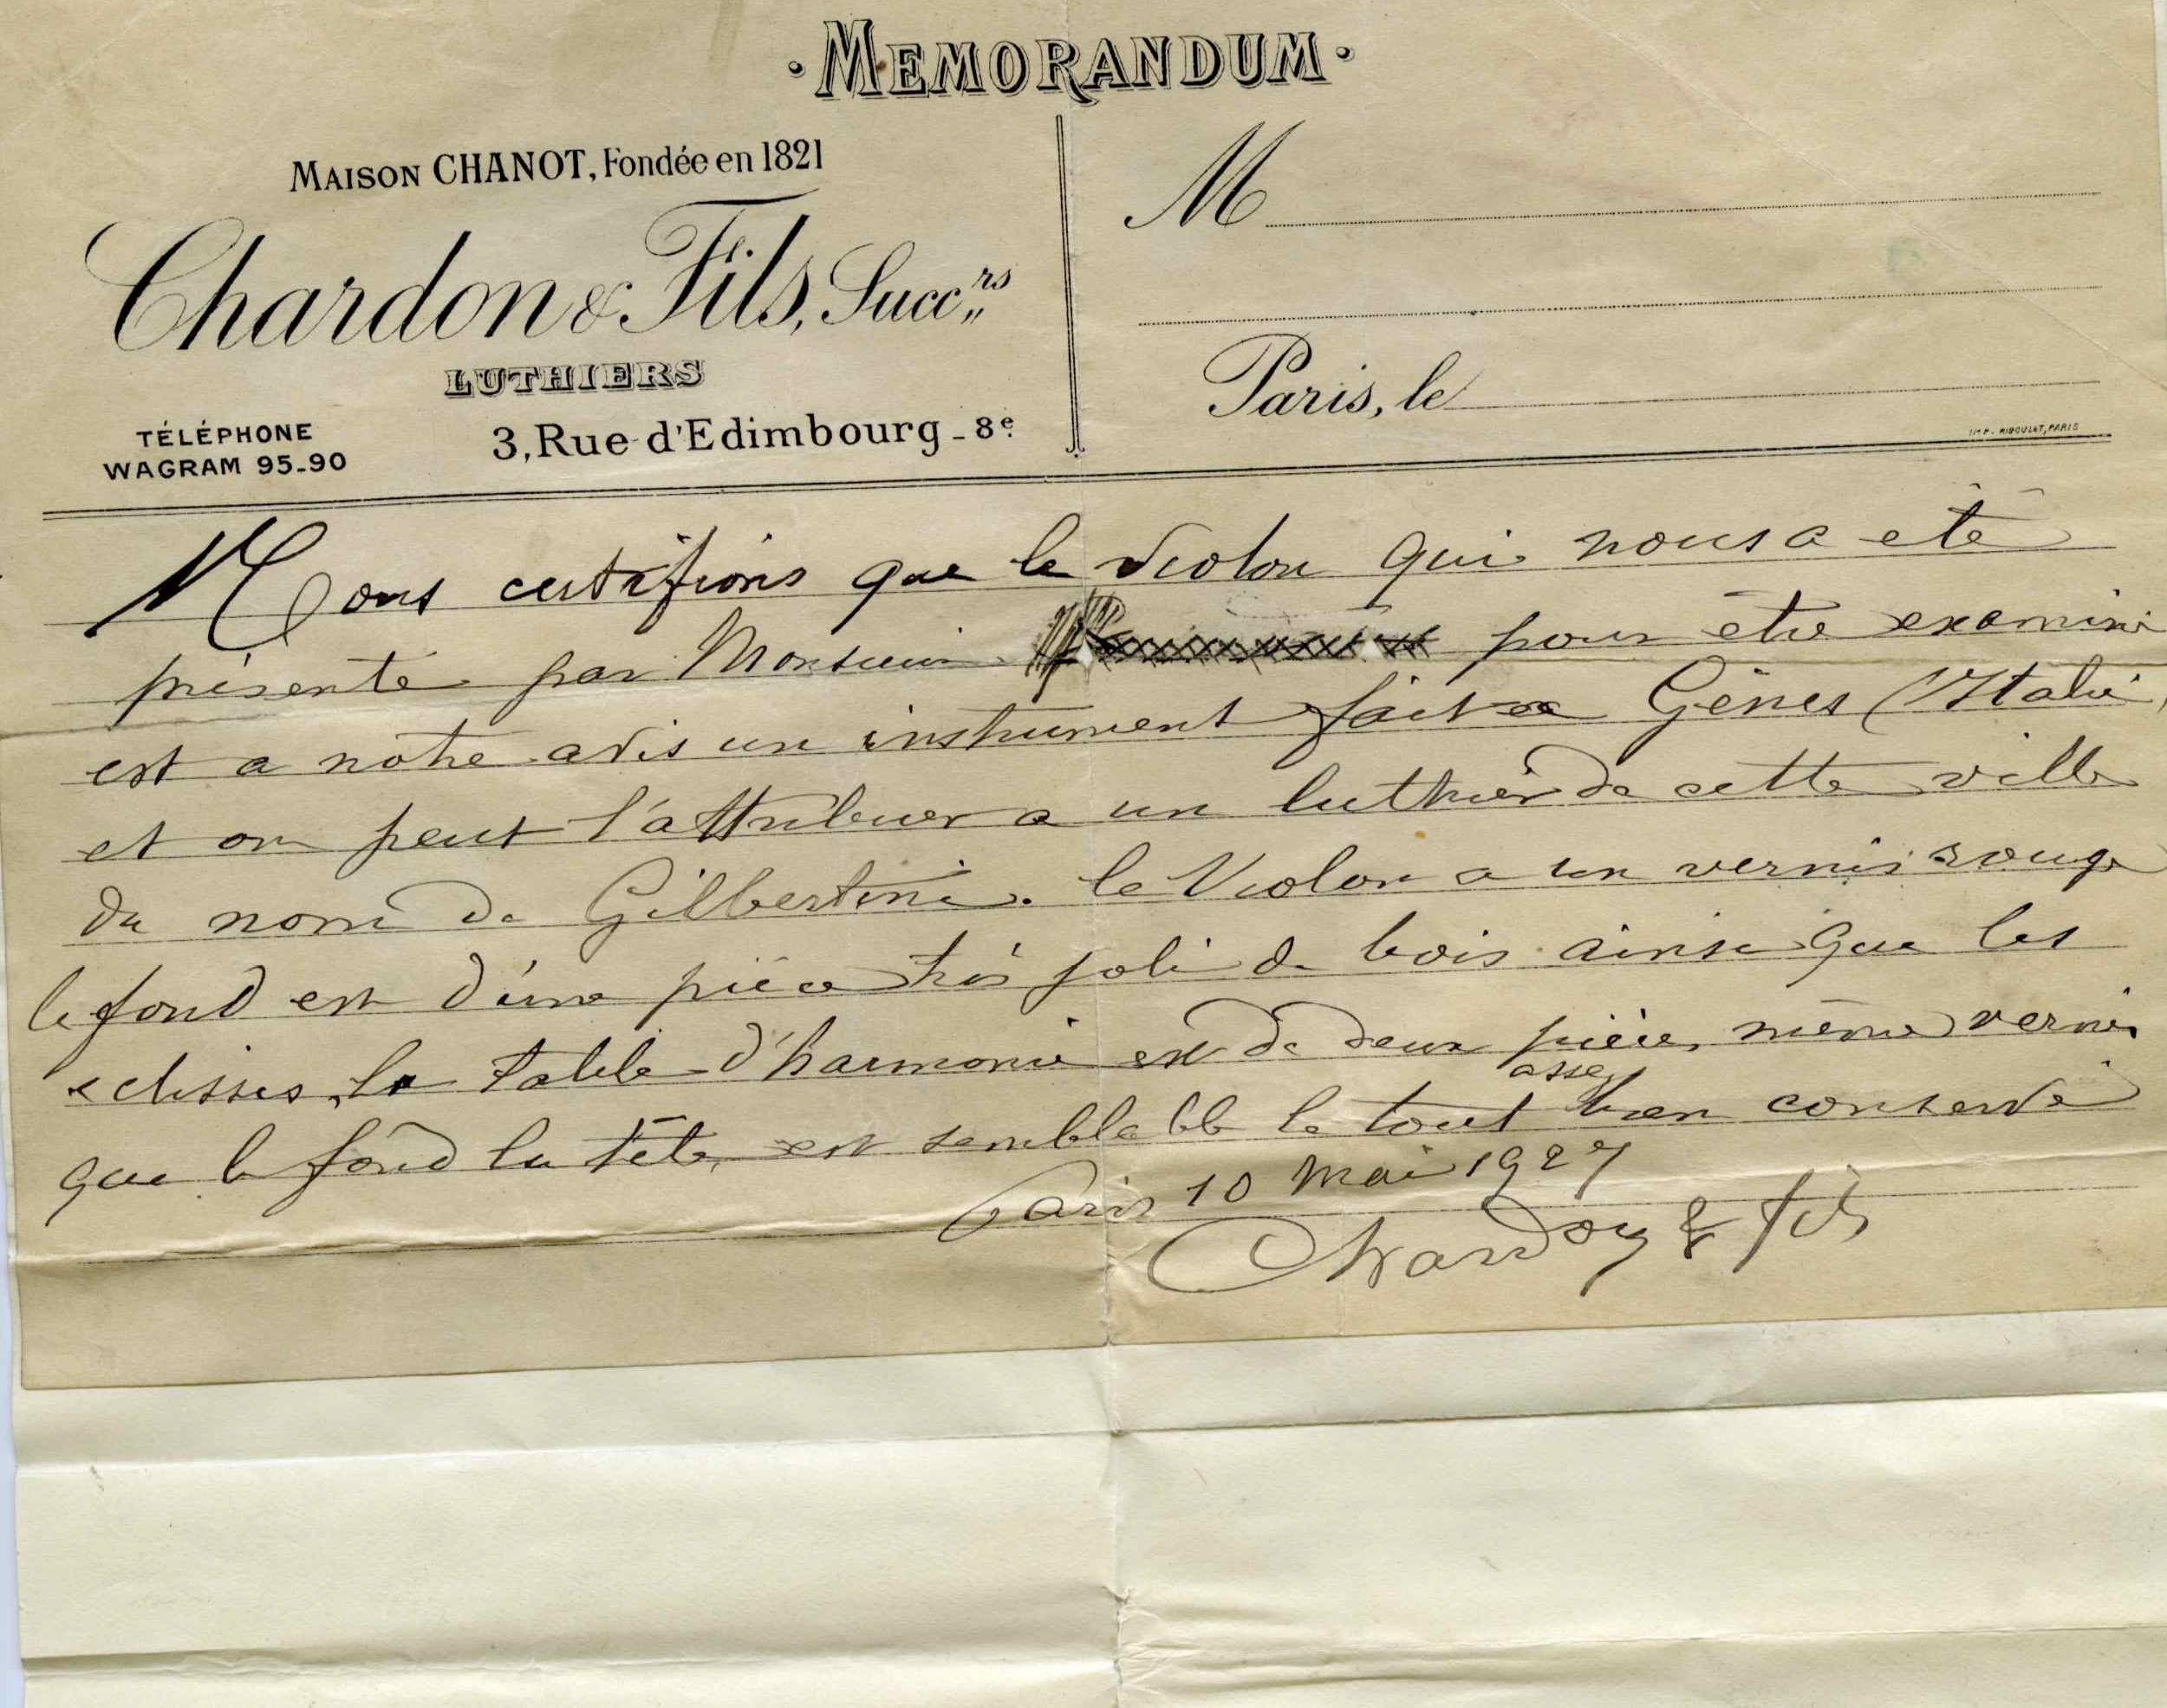 · MEMORANDUM ·
MAISON CHANOT, Fondée en 1821
Chardon & Fils, Succ.rs
LUTHIERS
TÉLÉPHONE
WAGRAM 95-90
3, Rue d'Edimbourg - 8e.
M
Paris, le
IMP. RIBOULAT, PARIS
Nous certifions que le Violon qui nous a eté
présenté par Monsieur pour être examiné
est a notre avis un instrument fait a Gênes (Italie)
et on peut l'attribuer a un luthier de cette ville
du nom de Gilbertini. le Violon a un vernis rouge
le fond est d'une pièce très joli de bois ainsi que les
eclisses, la table d'harmonie est de deux pièce, même vernis
que le fond la tête, est semblable le tout assez bien conservé
Paris 10 Mai 1927
Chardon & fils